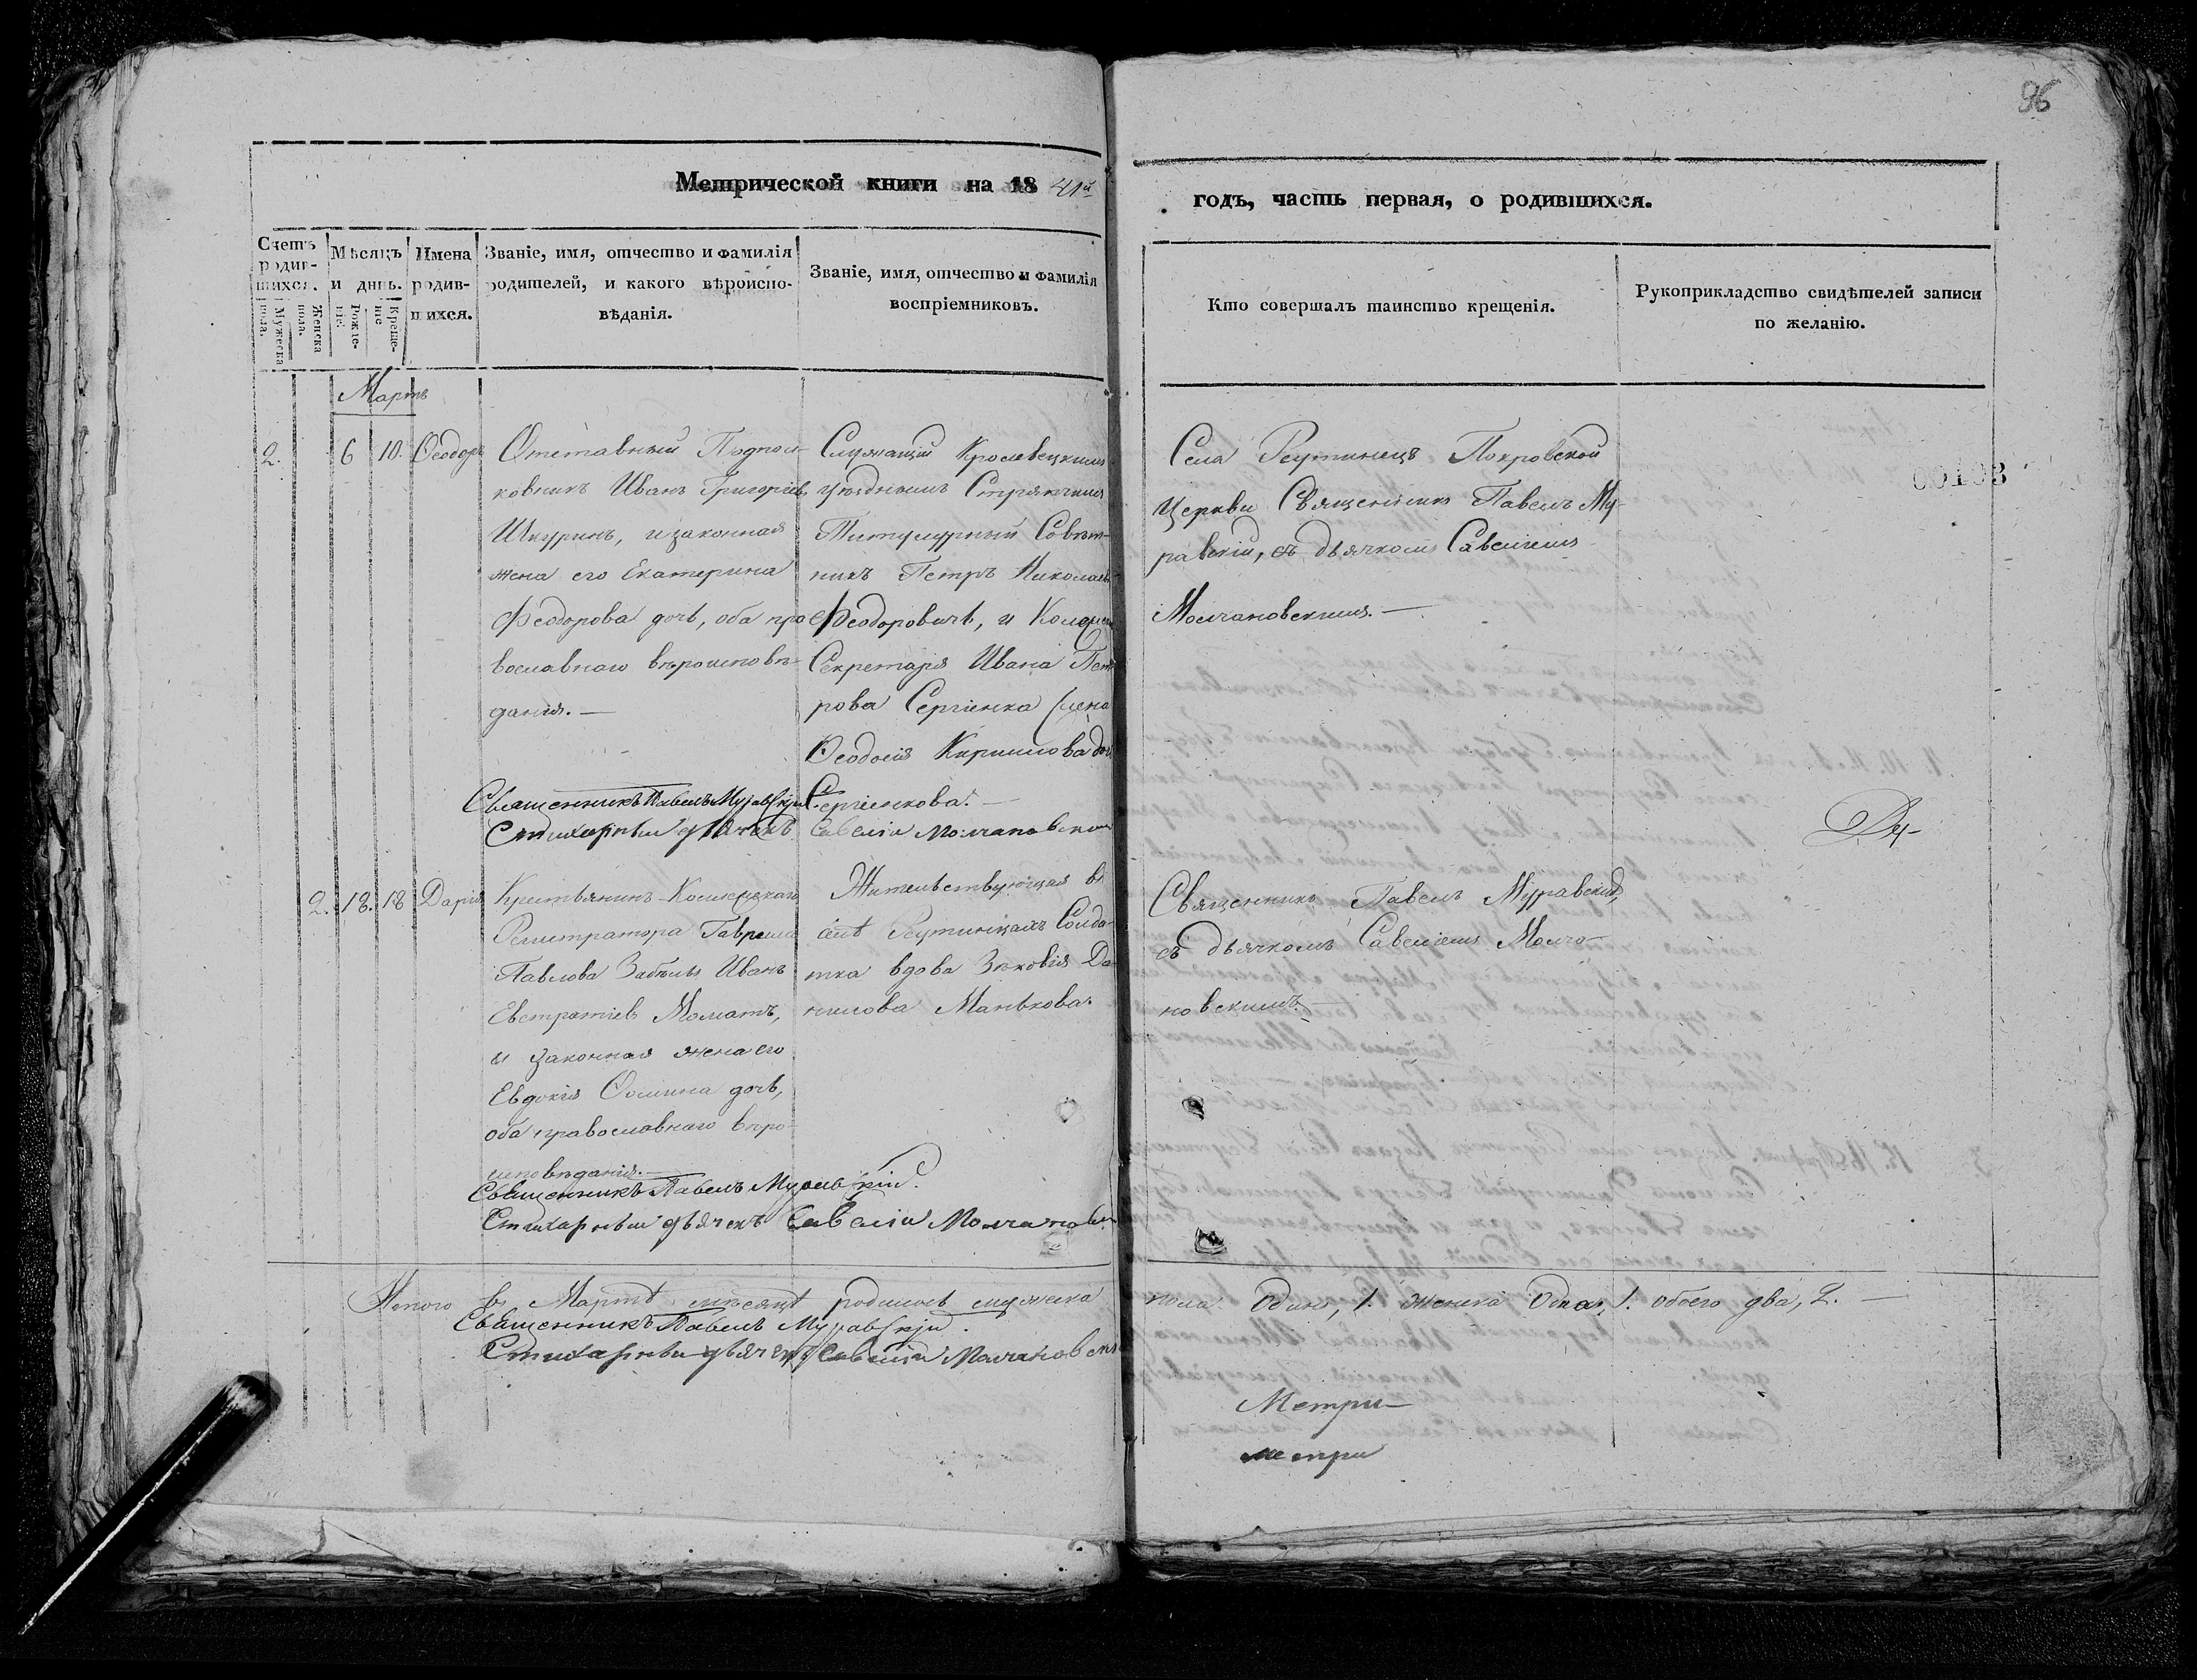 96
Метрической книги на 18 41й
годъ, часть первая, о родившихся.
Счетъ родив-шихся.
Мужеска пола.
Женска пола.
Мѣсяцъ и днь.
Рожде-ніе.
Креще-ніе
Имена родив-шихся.
Званіе, имя, отчество и фамилія
родителей, и какого вѣроиспо-
вѣданія.
Званіе, имя, отчество и фамилія
воспріемниковъ.
Кто совершалъ таинство крещенія.
Рукоприкладство свидѣтелей записи
по желанію.
Мартъ
2. 6 10. Ѳеодоръ
Отставный Подпол-
ковникъ Иванъ Григоріевъ
Шкуринъ, и законная
жена его Екатерина
Феодорова дочь, оба пра-
вославнаго вѣроисповѣ-
данія. —
Служащій Кролевецкимъ
уѣзднымъ Стряпчимъ
Титулярный Совѣт-
никъ Петръ Николаевъ
Феодоровичъ, и
Секретаря Ивана Пет-
рова Сергіенка жена
Ѳеодосія Кирилова доч
Сергіенкова. —
Села Реутинецъ Покровской
Церкви Священникъ Павелъ Му-
равскій, съ дьячкомъ Савеліемъ
Молчановскимъ. —
00103
Священникъ Павелъ Муравскій
Стихарный дьячекъ Савелій Молчановскій
2. 18. 18 Дарія
Крестьянинъ Колежскаго
Регистратора Гавріила
Павлова Забѣлы Иванъ
Евстратіевъ Моматъ,
и законная жена его
Евдокія Ѳомина дочь,
оба православнаго вѣро-
исповѣданія. —
Жительствующая въ
селѣ Реутинцахъ Солда-
тка вдова Зѣновія Да-
нилова Манькова.
Священникъ Павелъ Муравскій,
съ дьячкомъ Савеліемъ Молча-
новскимъ. —
Священникъ Павелъ Муравскій.
Стихарный дьячекъ Савелій Молчановскій
Итого въ Мартѣ мѣсяцѣ родилось мужеска
пола Одинъ, 1. женска Одна, 1. обоего два, 2. —
Священникъ Павелъ Муравскій.
Стихарный дьячекъ Савелій Молчановскій
Метри-
метри